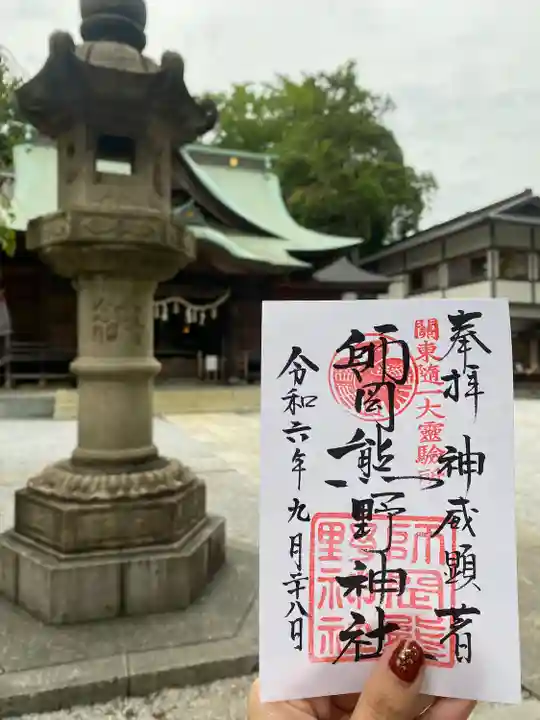 奉拝 神威顕著
關東随一大靈驗所
師岡熊野神社
師岡熊野神社
令和六年九月二十八日